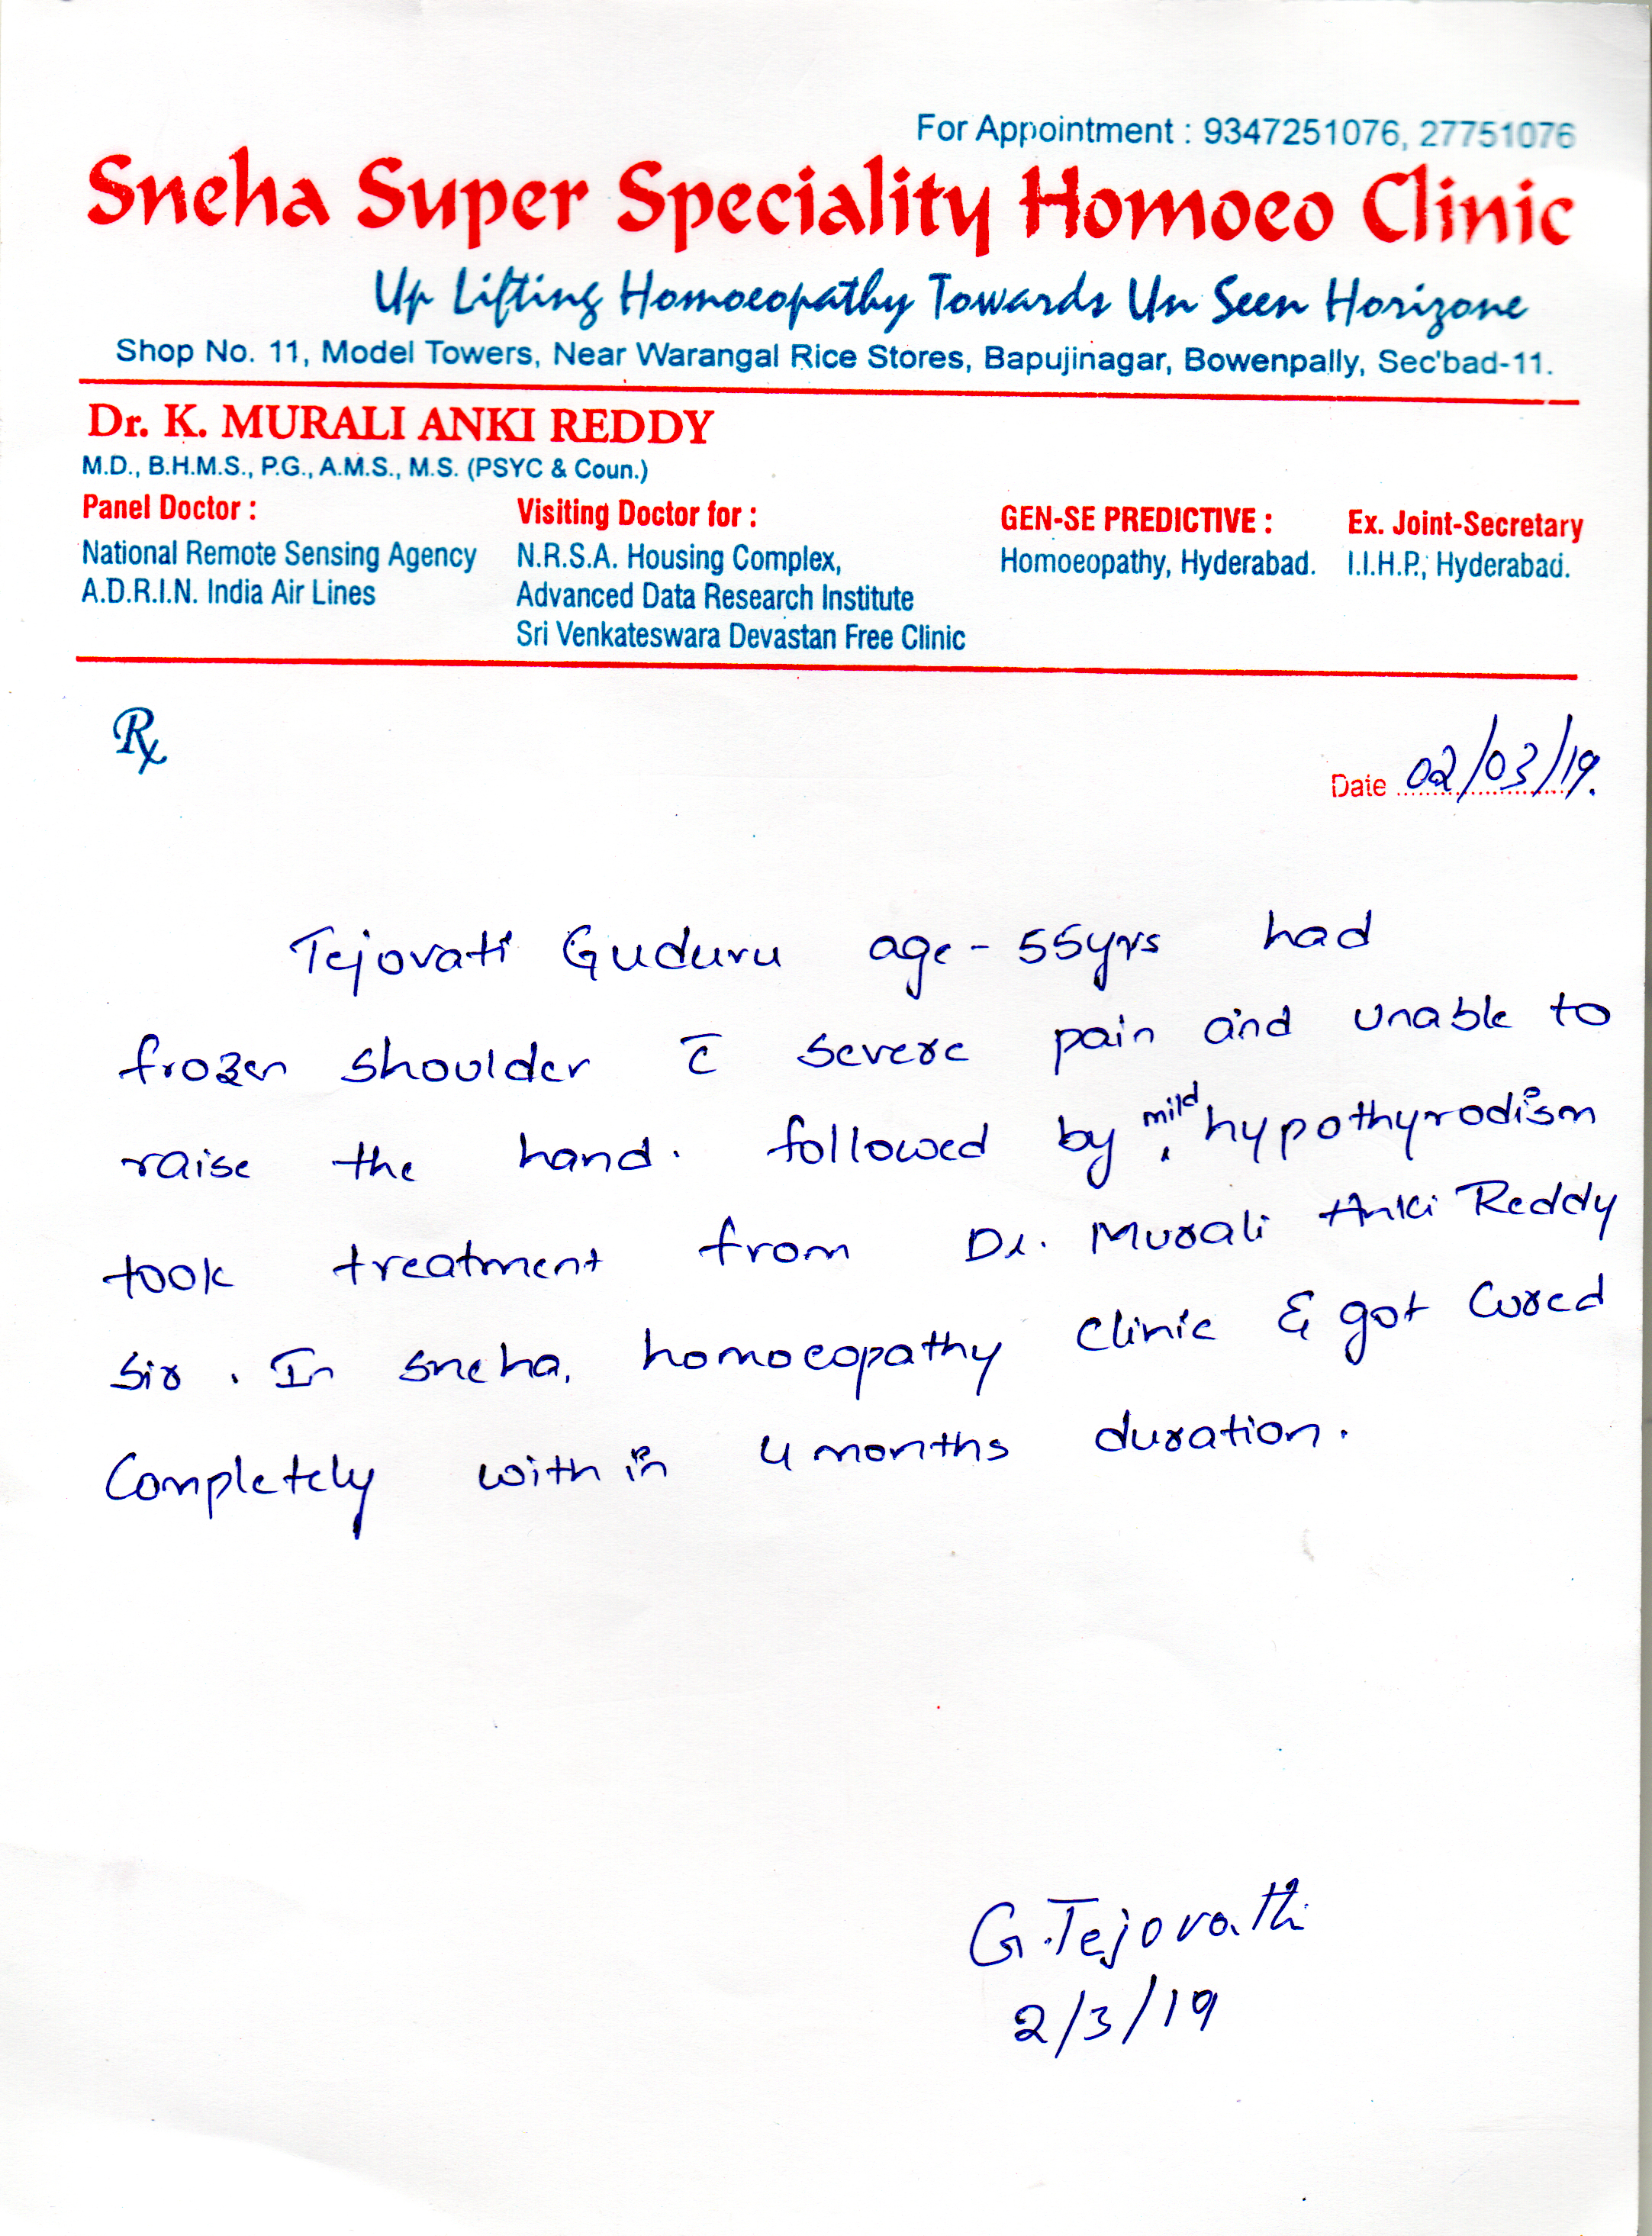 For Appointment : 9347251076, 27751076
Sneha Super Speciality Homoeo Clinic
Up Lifting Homoeopathy Towards Un Seen Horizone
Shop No. 11, Model Towers, Near Warangal Rice Stores, Bapujinagar, Bowenpally, Sec'bad-11.
Dr. K. MURALI ANKI REDDY
M.D., B.H.M.S., P.G., A.M.S., M.S. (PSYC & Coun.)
Panel Doctor :
National Remote Sensing Agency
A.D.R.I.N. India Air Lines
Visiting Doctor for :
N.R.S.A. Housing Complex,
Advanced Data Research Institute
Sri Venkateswara Devastan Free Clinic
GEN-SE PREDICTIVE :
Homoeopathy, Hyderabad.
Ex. Joint-Secretary
I.I.H.P., Hyderabad.
Rx
Date 02/03/19.
Tejovati Guduru age - 55yrs had
frozen shoulder c̄ severe pain and unable to
raise the hand. followed by mild hypothyrodism
took treatment from Dr. Murali Anki Reddy
Sir. In sneha, homoeopathy clinic & got cured
Completely with in 4 months duration.
G.Tejovathi
2/3/19